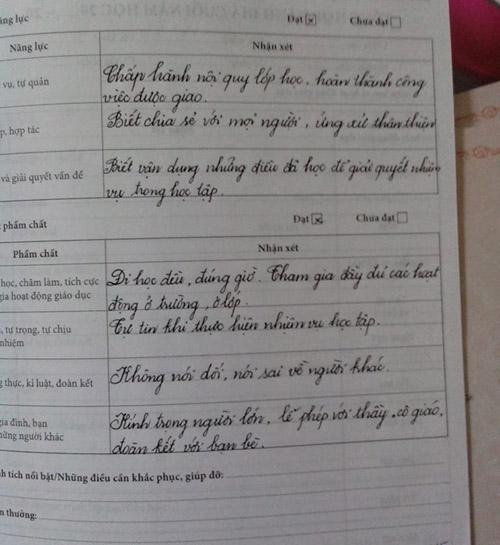 ăng lực Đạt ☒ Chưa đạt ☐
Năng lực Nhận xét
vụ, tự quản Chấp hành nội quy lớp học, hoàn thành công
việc được giao.
p, hợp tác Biết chia sẻ với mọi người, ứng xử thân thiện
và giải quyết vấn đề Biết vận dụng những điều đã học để giải quyết nhiệm
vụ trong học tập.
phẩm chất Đạt ☒ Chưa đạt ☐
Phẩm chất Nhận xét
học, chăm làm, tích cực Đi học đều, đúng giờ. Tham gia đầy đủ các hoạt
gia hoạt động giáo dục động ở trường, ở lớp.
, tự trọng, tự chịu Tự tin khi thực hiện nhiệm vụ học tập.
nhiệm
g thực, kỉ luật, đoàn kết Không nói dối, nói sai về người khác.
gia đình, bạn Kính trọng người lớn, lễ phép với thầy, cô giáo,
hững người khác đoàn kết với bạn bè.
h tích nổi bật/Những điều cần khắc phục, giúp đỡ:
n thưởng: